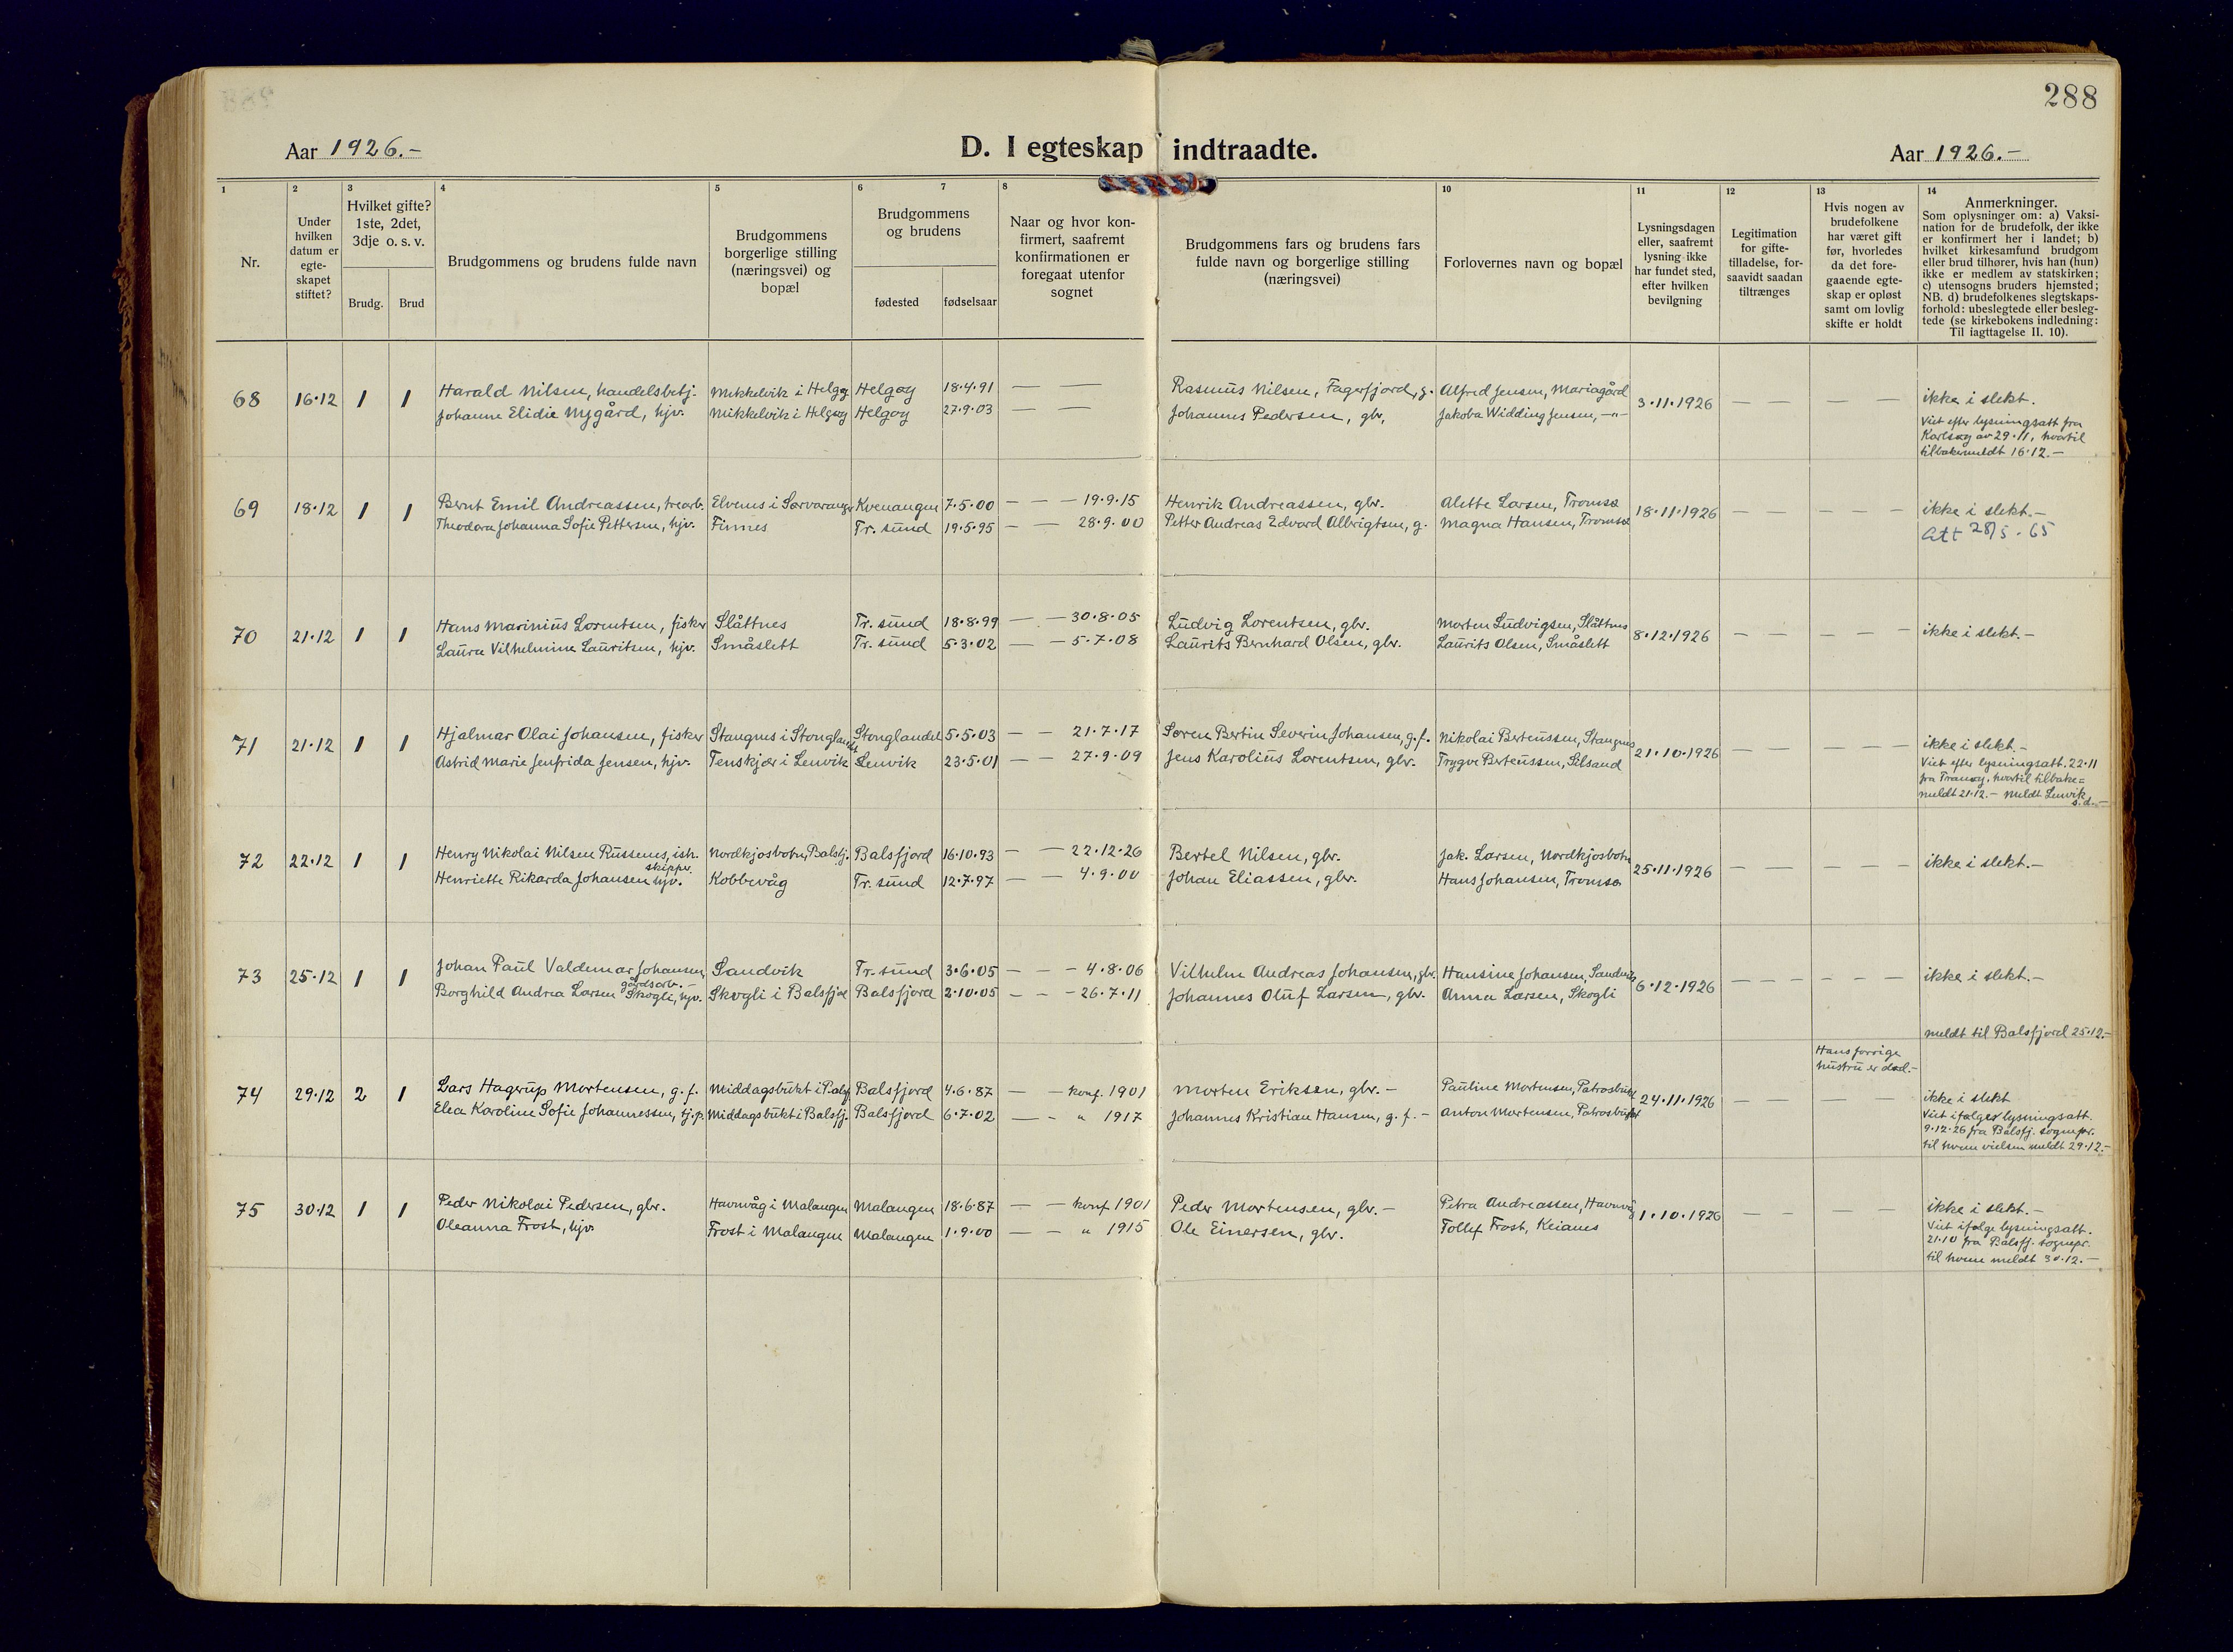 288
Aar 1926.-
D. I egteskap indtraadte.
Aar 1926.-
1 2 3 4 5 6 7 8 10 11 12 13 14
Nr.
Under hvilken datum er egte-skapet stiftet?
Hvilket gifte? 1ste, 2det, 3dje o. s. v.
Brudg. Brud
Brudgommens og brudens fulde navn
Brudgommens borgerlige stilling (næringsvei) og bopæl
Brudgommens og brudens
fødested fødselsaar
Naar og hvor kon-firmert, saafremt konfirmationen er foregaat utenfor sognet
Brudgommens fars og brudens fars fulde navn og borgerlige stilling (næringsvei)
Forlovernes navn og bopæl
Lysningsdagen eller, saafremt lysning ikke har fundet sted, efter hvilken bevilgning
Legitimation for gifte-tilladelse, for-saavidt saadan tiltrænges
Hvis nogen av brudefolkene har været gift før, hvorledes da det fore-gaaende egte-skap er opløst samt om lovlig skifte er holdt
Anmerkninger.
Som oplysninger om: a) Vaksi-nation for de brudefolk, der ikke er konfirmert her i landet; b) hvilket kirkesamfund brudgom eller brud tilhører, hvis han (hun) ikke er medlem av statskirken; c) utensogns bruders hjemsted; NB. d) brudefolkenes slegtskaps-forhold: ubeslegtede eller besleg-tede (se kirkebokens indledning: Til iagttagelse II. 10).
68 16.12 1 1 Harald Nilsen, handelsbetj. Mikkelvik i Helgøy Helgøy 18.4.91 — — Rasmus Nilsen, Fagerfjord, g. Alfred Jensen, Mariagård 3.11.1926 — — — — ikke i slekt.
Johanne Elidie Nygård, hjv. Mikkelvik i Helgøy Helgøy 27.9.03 — — Johannes Pedersen, gbr. Jakoba Widding Jensen, —"—
Viet efter lysningsatt fra
Karlsøy av 29.11, hvortil
tilbakemeldt 16.12.—
69 18.12 1 1 Bernt Emil Andreassen, trearb. Elvenes i Sørvaranger Kvenangen 7.5.00 — — — 19.9.15 Henrik Andreassen, gbr. Alette Larsen, Tromsø 18.11.1926 — — — — — ikke i slekt.—
Theodora Johanna Sofie Pettersen, hjv. Finnes Tr. sund 19.5.95 — — 28.9.00 Petter Andreas Edvard Albrigtsen, g. Magna Hansen, Tromsø
Att 28/5.65
70 21.12 1 1 Hans Marinius Lorentsen, fisker Slåttnes Tr. sund 18.8.99 — — 30.8.05 Ludvig Lorentsen, gbr. Morten Ludvigsen, Slåttnes 8.12.1926 — — — — — ikke i slekt.—
Laura Vilhelmine Lauritsen, hjv. Småslett Tr. sund 5.3.02 — — 5.7.08 Laurits Bernhard Olsen, gbr. Laurits Olsen, Småslett
71 21.12 1 1 Hjalmar Olai Johansen, fisker Stangnes i Stonglandet Stonglandet 5.5.03 — — 21.7.17 Søren Bertin Severin Johansen, g.f. Nikolai Berteussen, Stangnes 21.10.1926 — — — — — ikke i slekt.—
Astrid Marie Jenfrida Jensen, hjv. Tenskjær i Lenvik Lenvik 23.5.01 — — 27.9.09 Jens Karolius Lorentsen, gbr. Trygve Berteussen, Silsand
Viet efter lysningsatt. 22.11
fra Tranøy, hvortil tilbake=
meldt 21.12.— Meldt Lenvik
s.d.—
72 22.12 1 1 Henry Nikolai Nilsen Russenes, ish. skipper. Nordkjosbotn, Balsfj. Balsfjord 16.10.93 — — 22.12.26 Bertel Nilsen, gbr. Jak. Larsen, Nordkjosbotn 25.11.1926 — — — — — ikke i slekt.—
Henriette Rikarda Johansen hjv. Kobbevåg Tr. sund 12.7.97 — — 4.9.00 Johan Eliassen, gbr. Hans Johansen, Tromsø
73 25.12 1 1 Johan Paul Valdemar Johansen, gårdsarb.— Sandvik Tr. sund 3.6.05 — — — 4.8.06 Vilhelm Andreas Johansen, gbr. Hansine Johansen, Sandvik 6.12.1926 — — — — — — — ikke i slekt.—
Borghild Andrea Larsen Skogli, hjv. Skogli i Balsfjord Balsfjord 2.10.05 — — — 26.7.11 Johannes Oluf Larsen, gbr. Anna Larsen, Skogli
meldt til Balsfjord 25.12.—
74 29.12 2 1 Lars Hagerup Mortensen, g.f. Middagsbukt i Balsf. Balsfjord 4.6.87 — — konf. 1901 Morten Eriksen, gbr.— Pauline Mortensen, Patrosbukt 24.11.1926 — — — — Hans forrige
hustru er død.—
ikke i slekt
Elea Karoline Sofie Johannessen, tj.p. Middagsbukt i Balsfj. Balsfjord 6.7.02 — — " 1917 Johannes Kristian Hansen, g.f.— Anton Mortensen, Patrosbukt
Viet ifølge lysningsatt.
9.12.26 fra Balsfj. sognepr.
til hvem vielsen meldt 29.12.—
75 30.12 1 1 Peder Nikolai Pedersen, gbr. Havnvåg i Malangen Malangen 18.6.87 — — konf 1901 Peder Mortensen, gbr.— Petra Andreassen, Havnvåg 1.10.1926 — — — — ikke i slekt.—
Oleanna Frost, hjv. Frost i Malangen Malangen 1.9.00 — — " 1915 Ole Einersen, gbr. Tollef Frost, Keianes
Viet ifølge lysningsatt.
21.10 fra Balsfj. sognepr.
til hvem meldt 30.12.—